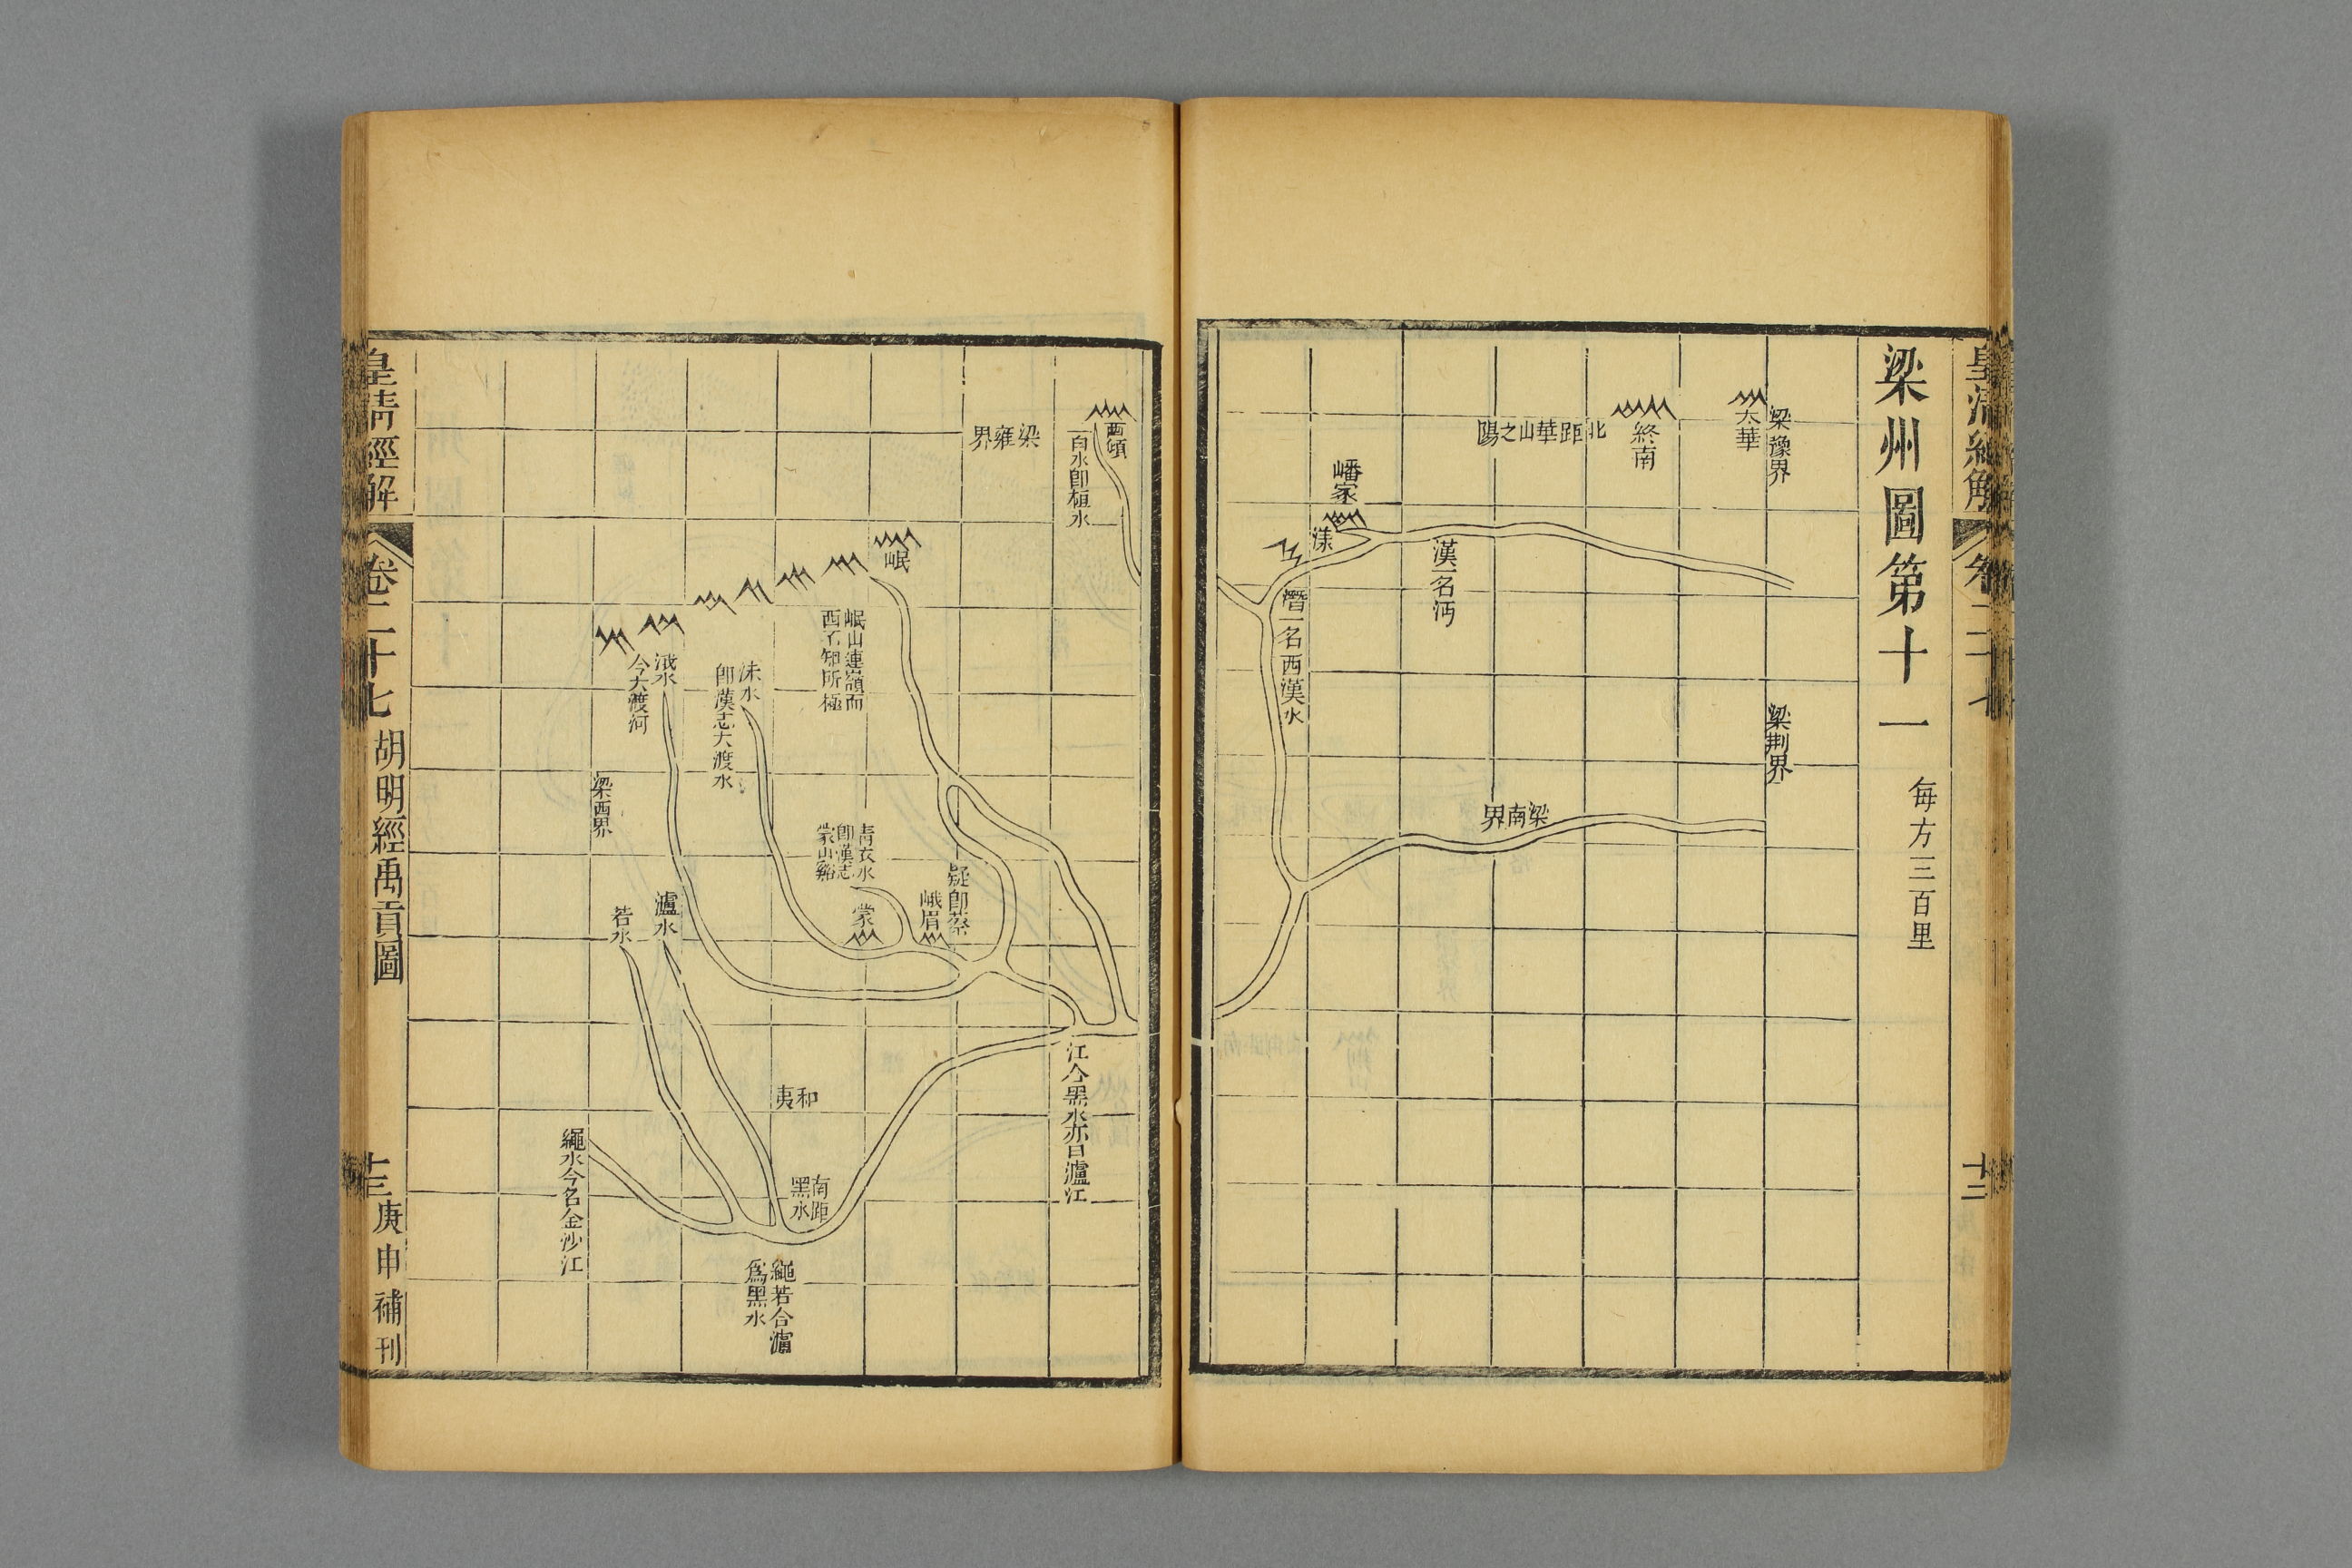 梁州圖第十一
每方三百里
梁豫界
太華
終南
北距華山之陽
梁荆界
嶓家
漾
漢一名沔
梁南界
潛一名西漢水
皇清經解
卷二十七
十二
西頃
白水卽桓水
梁雍界
岷
岷山連嶺而
西不知所極
江合黑水亦曰瀘江
疑卽蔡
峨眉
青衣水
卽漢志
蒙山谿
蒙
沬水
卽漢志大渡水
涐水
今大渡河
梁西界
瀘水
若水
和夷
南距
黑水
繩若合瀘
爲黑水
繩水今名金沙江
皇清經解
卷二十七
胡明經禹貢圖
十三
庚申補刊